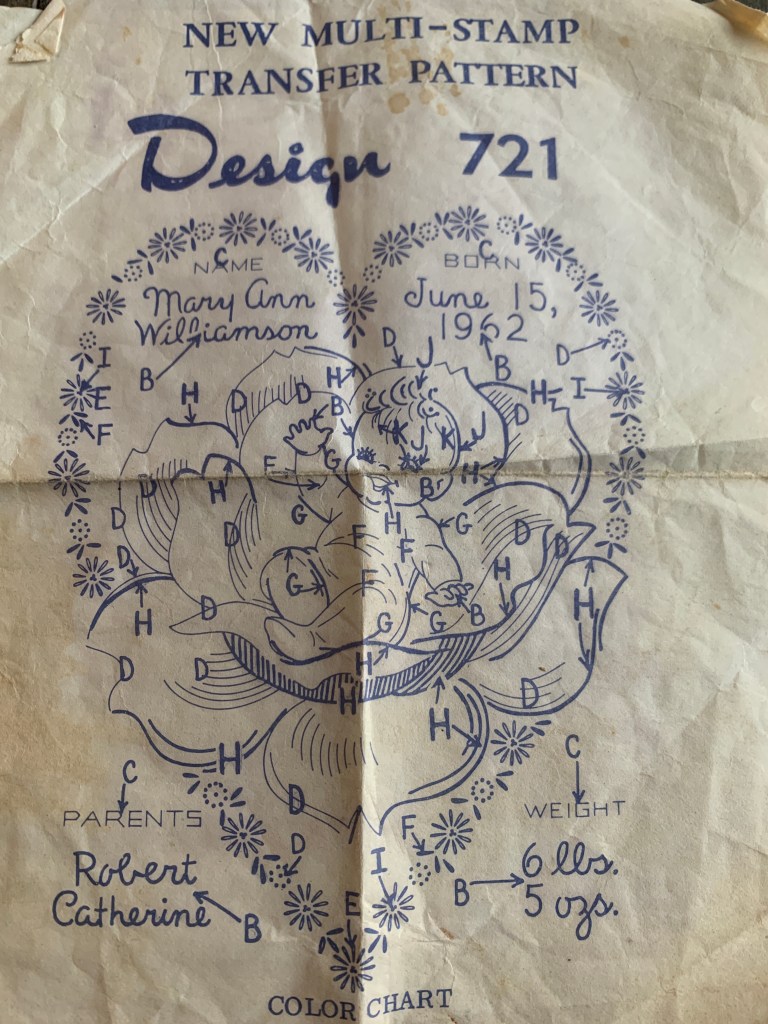 NEW MULTI-STAMP
TRANSFER PATTERN
Design 721
C
C
NAME
BORN
Mary Ann
Williamson
June 15,
1962
D
J
I
B
H
H
D
D
B
B
D
H
I
E
F
D
K
J
K
J
G
H
F
H
D
Br
G
H
G
D
D
D
F
F
D
D
H
G
F
H
D
B
G
G
H
D
D
H
H
D
H
H
D
C
C
PARENTS
WEIGHT
D
F
D
I
Robert
Catherine
6 lbs.
5 ozs.
B
B
E
COLOR CHART